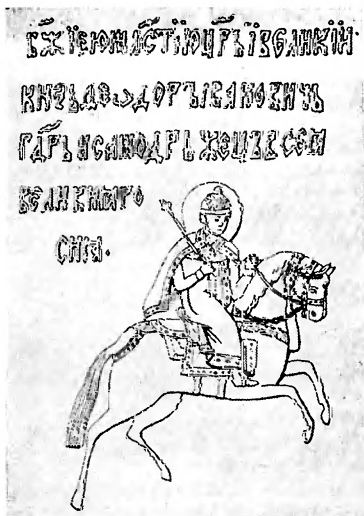 БЖЇЕЮ МЛСТЇЮ ЦРЬ Ї ВЕЛИКИЙ
КНЗЬ ѲЕѠДОРЪ ЇВАНОВИЧЬ
ГДРЬ И САМОДРЬЖЕЦЪ ВСЕѦ
ВЕЛИКИѦ РО
СИѦ·